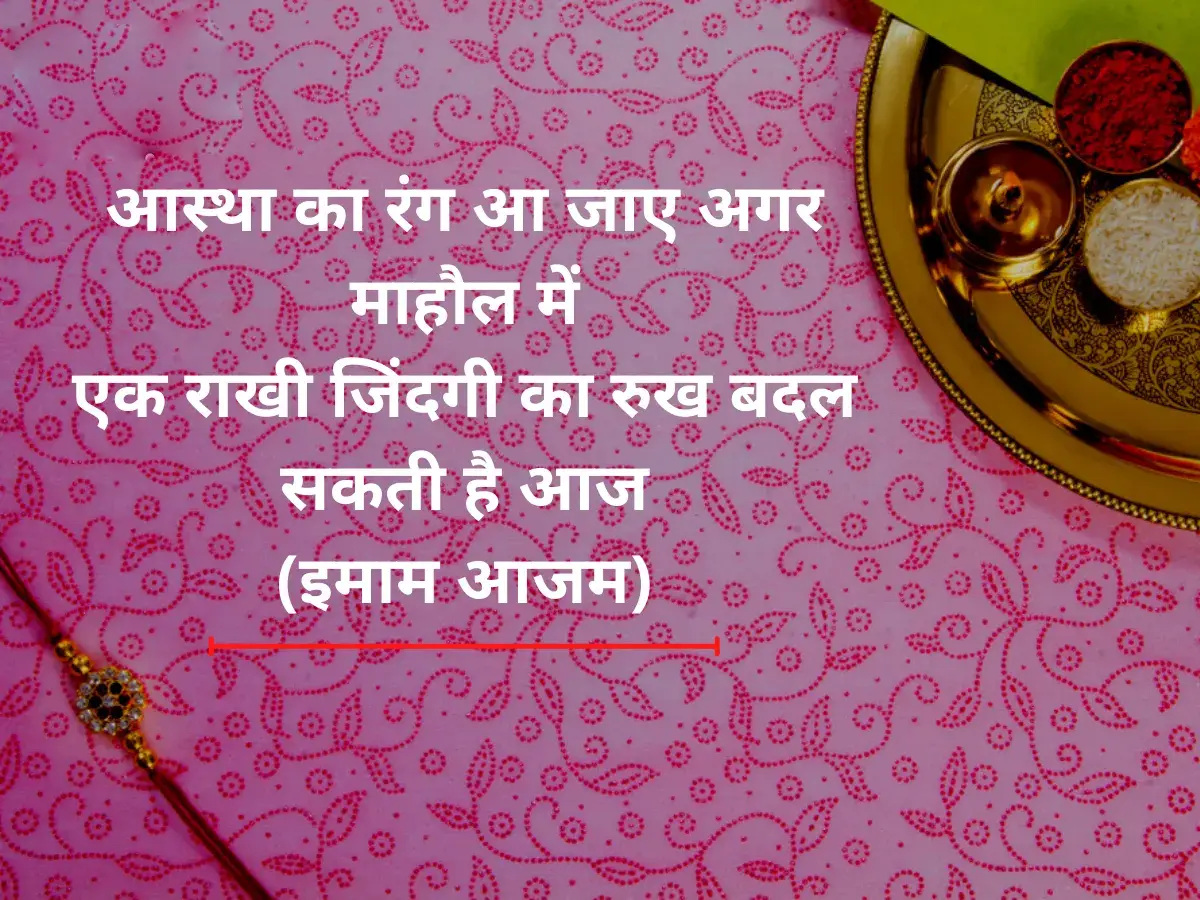 आस्था का रंग आ जाए अगर
माहौल में
एक राखी जिंदगी का रुख बदल
सकती है आज
(इमाम आजम)